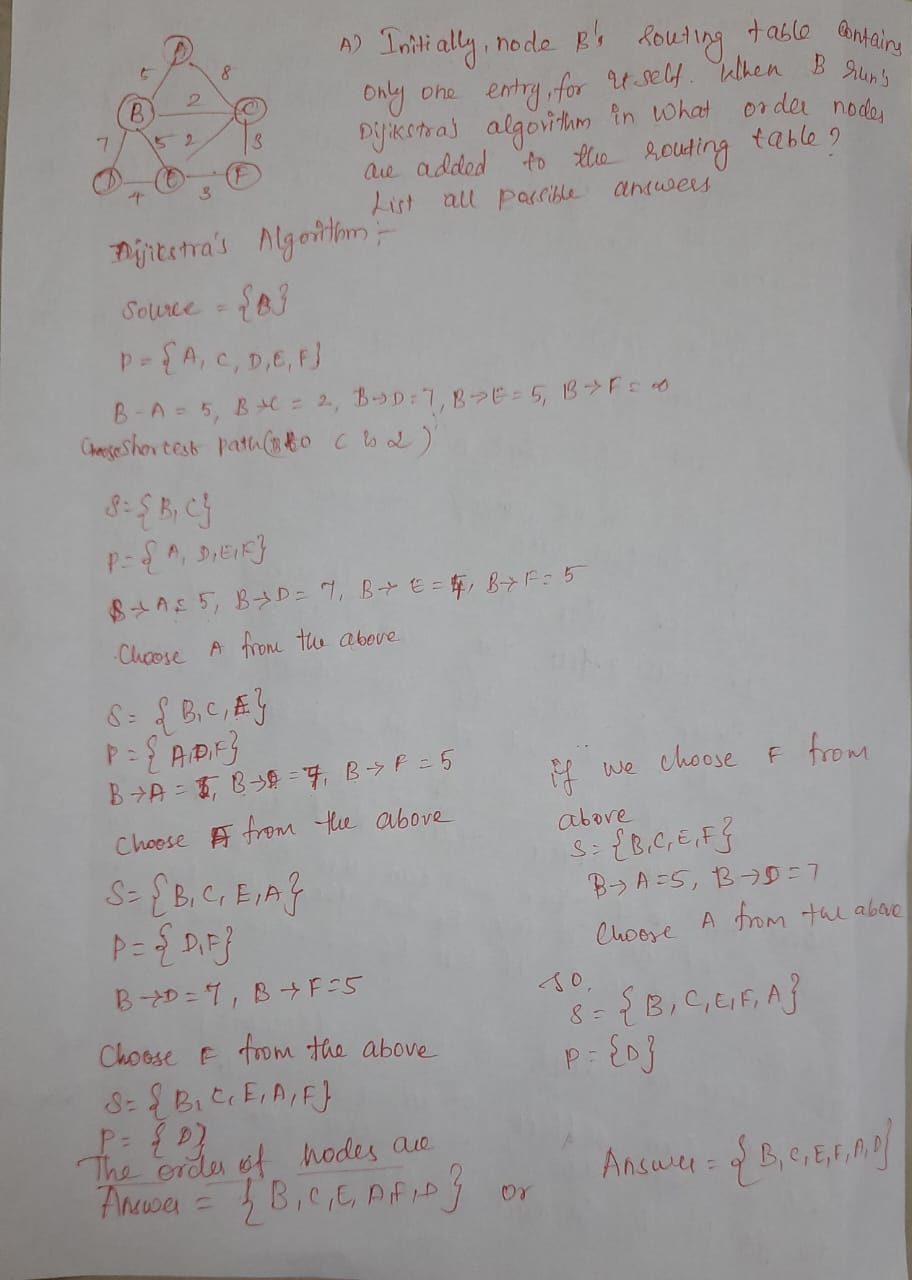 A) Initially, node B's Routing table Contains
only one entry, for itself. When B Run's
Dijikstra's algorithm in what order nodes
are added to the routing table?
List all possible answers
A
5
8
B
2
C
7
5
2
3
D
E
F
4
3
Dijikstra's Algorithm :-
Source = {B}
P = {A, C, D, E, F}
B - A = 5, B → C = 2, B → D = 7, B → E = 5, B → F = ∞
Choose Shortest path (B to C is 2)
S = {B, C}
P = {A, D, E, F}
B → A = 5, B → D = 7, B → E = 4, B → F = 5
Choose A from the above
S = {B, C, E}
P = {A, D, F}
B → A = 5, B → D = 7, B → F = 5
Choose A from the above
S = {B, C, E, A}
P = {D, F}
B → D = 7, B → F = 5
Choose F from the above
S = {B, C, E, A, F}
P = {D}
The order of nodes are
Answer = {B, C, E, A, F, D} or
if we choose F from
above
S = {B, C, E, F}
B → A = 5, B → D = 7
Choose A from the above
so,
S = {B, C, E, F, A}
P = {D}
Answer = {B, C, E, F, A, D}